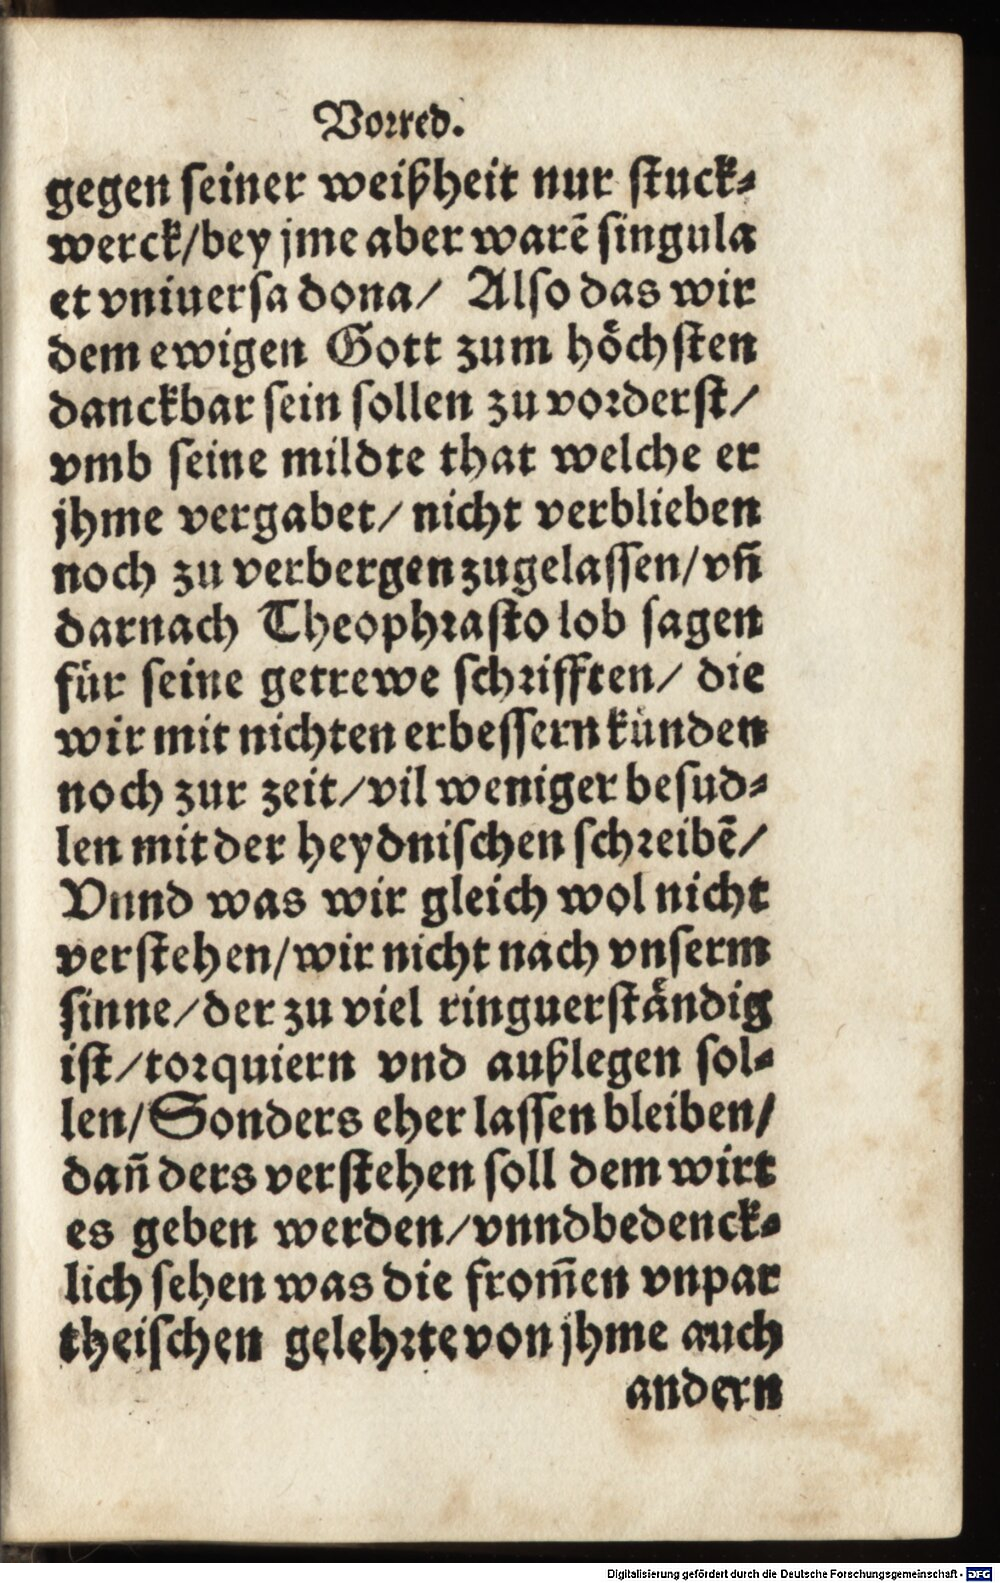 Vorred.
gegen seiner weißheit nur stuck⸗
werck/bey jme aber warē singula
et vniuersa dona/ Also das wir
dem ewigen Gott zum höchsten
danckbar sein sollen zu vorderst/
vmb seine mildte that welche er
jhme vergabet/ nicht verblieben
noch zu verbergen zugelassen/vn̄
darnach Theophrasto lob sagen
für seine getrewe schrifften/ die
wir mit nichten erbessern künden
noch zur zeit/vil weniger besud⸗
len mit der heydnischen schreibē/
Vnnd was wir gleich wol nicht
verstehen/wir nicht nach vnserm
sinne/der zu viel ringuerständig
ist/torquiern vnd außlegen sol⸗
len/Sonders eher lassen bleiben/
dan̄ ders verstehen soll dem wirt
es geben werden/vnndbedenck⸗
lich sehen was die from̄en vnpar
theischen gelehrte von jhme auch
andern
Digitalisierung gefördert durch die Deutsche Forschungsgemeinschaft - DFG